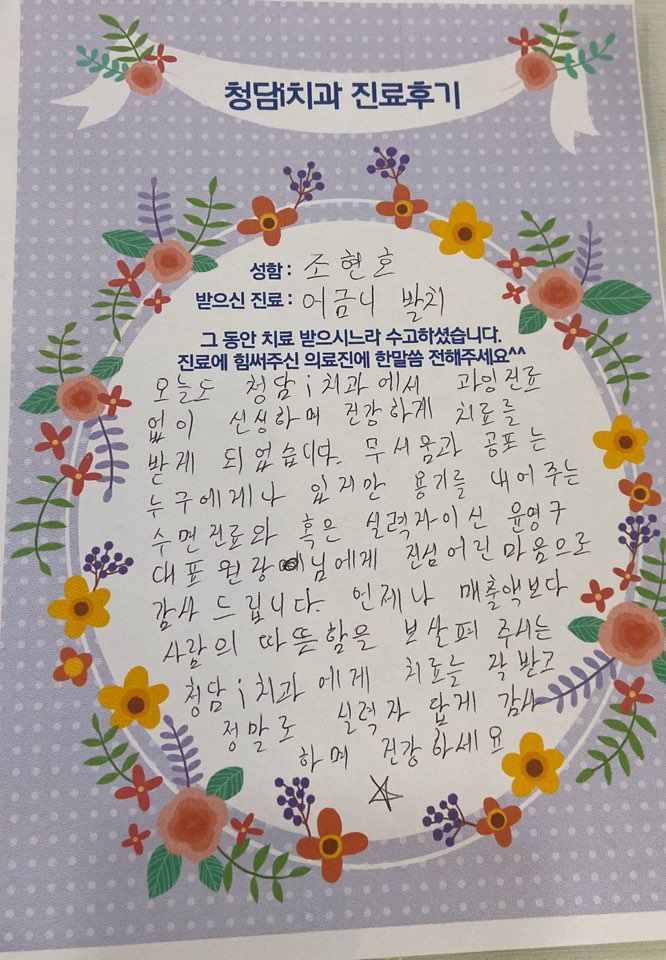 청담i치과 진료후기
성함 : 조현호
받으신 진료 : 어금니 발치
그 동안 치료 받으시느라 수고하셨습니다.
진료에 힘써주신 의료진에 한말씀 전해주세요^^
오늘도 청담i치과에서 과잉진료
없이 신싱하며 건강하게 치료를
받게 되었습니다. 무서움과 공포는
누구에게나 있지만 용기를 내어주는
수면진료와 혹은 실력자이신 윤영구
대표원장님에게 진심어린 마음으로
감사드립니다. 언제나 매출액보다
사람의 따뜻함을 보살펴 주시는
청담i치과에게 치료를 잘받고
정말로 실력자 답게 감사
하며 건강하세요